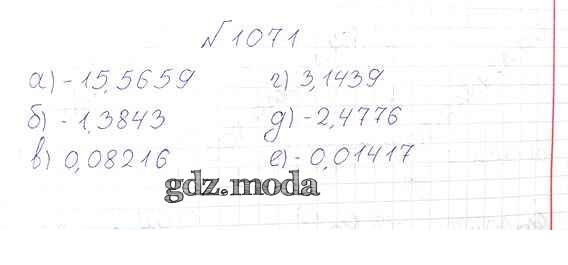 №1071
а) -15,5659 г) 3,1439
б) -1,3843 д) -2,4776
в) 0,08216 е) -0,01417
gdz.moda